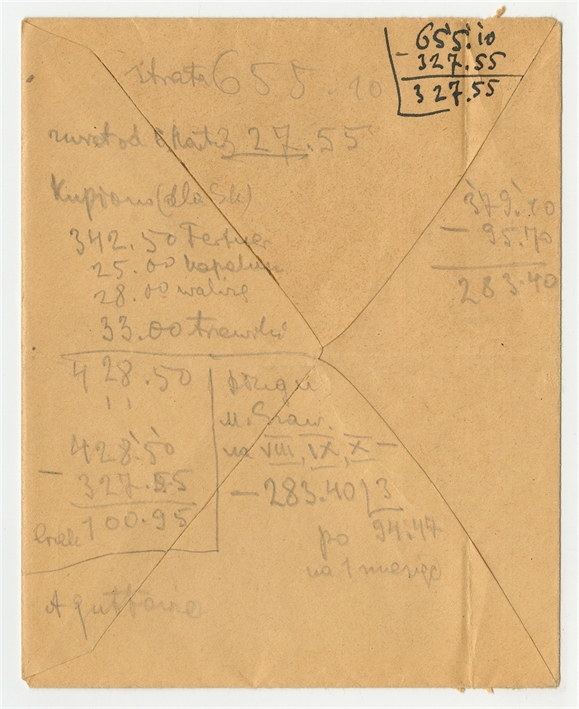 655.10
- 327.55
327.55
strata 655.10
327.55
Kupiono (dla Sk)
342.50 Ferther
25.00 kapelusz
28.00 walizę
33.00 trzewiki
428.50
428.50
- 327.55
brak 100.95
379.10
- 95.70
283.40
długu
na VIII, IX, X —
- 283.40 | 3
po 94.47
na 1 miesiąc